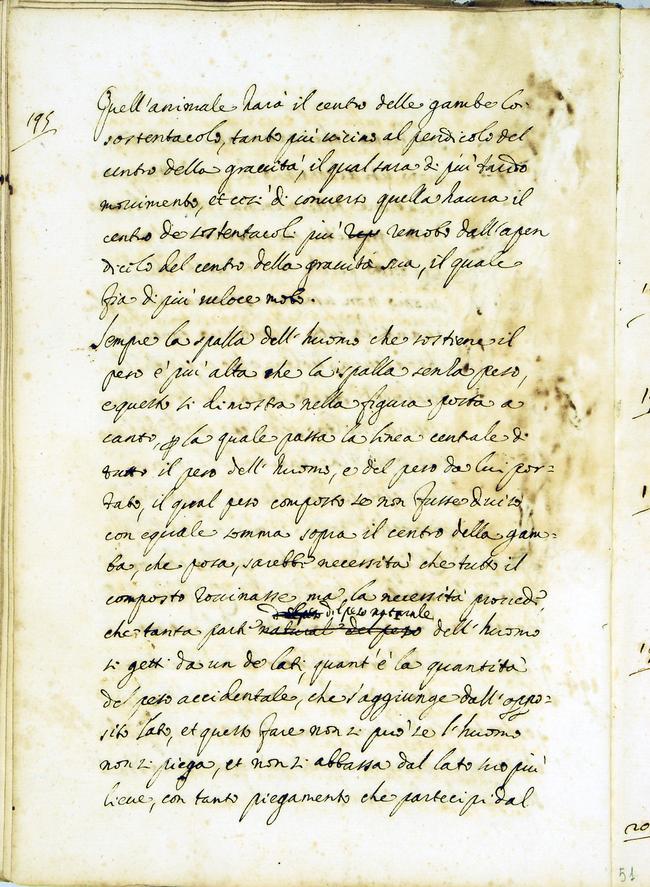 195
Quell'animale harà il centro delle gambe lor
sostentacolo, tanto più vicino al pendicolo del
centro della gravità, il qual sara di più tardo
movimento, et così di converso quella haura il
centro de sostentacoli più remoto dall'apen
dicolo del centro della gravità sua, il quale
fia di più veloce moto.
Sempre la spalla dell'huomo che sostiene il
peso è più alta che la spalla senza peso,
e questo si dimostra nella figura posta a
canto, per la quale passa la linea centrale di
tutto il peso dell'huomo, e del peso da lui por=
tato, il qual peso composto se non fusse diviso
con equale somma sopra il centro della gam=
ba, che posa, sarebbe necessità che tutto il
composto rovinasse ma la necessità provede
del peso naturale
che tanta parte natural del peso dell'huomo
si getti da un de lati, quant'è la quantità
del peso accidentale, che s'aggiunge dall'oppo=
sito lato, et questo fare non si può se l'huomo
non si piega, et non si abbassa dal lato suo più
lieve, con tanto piegamento che partecipi dal
51